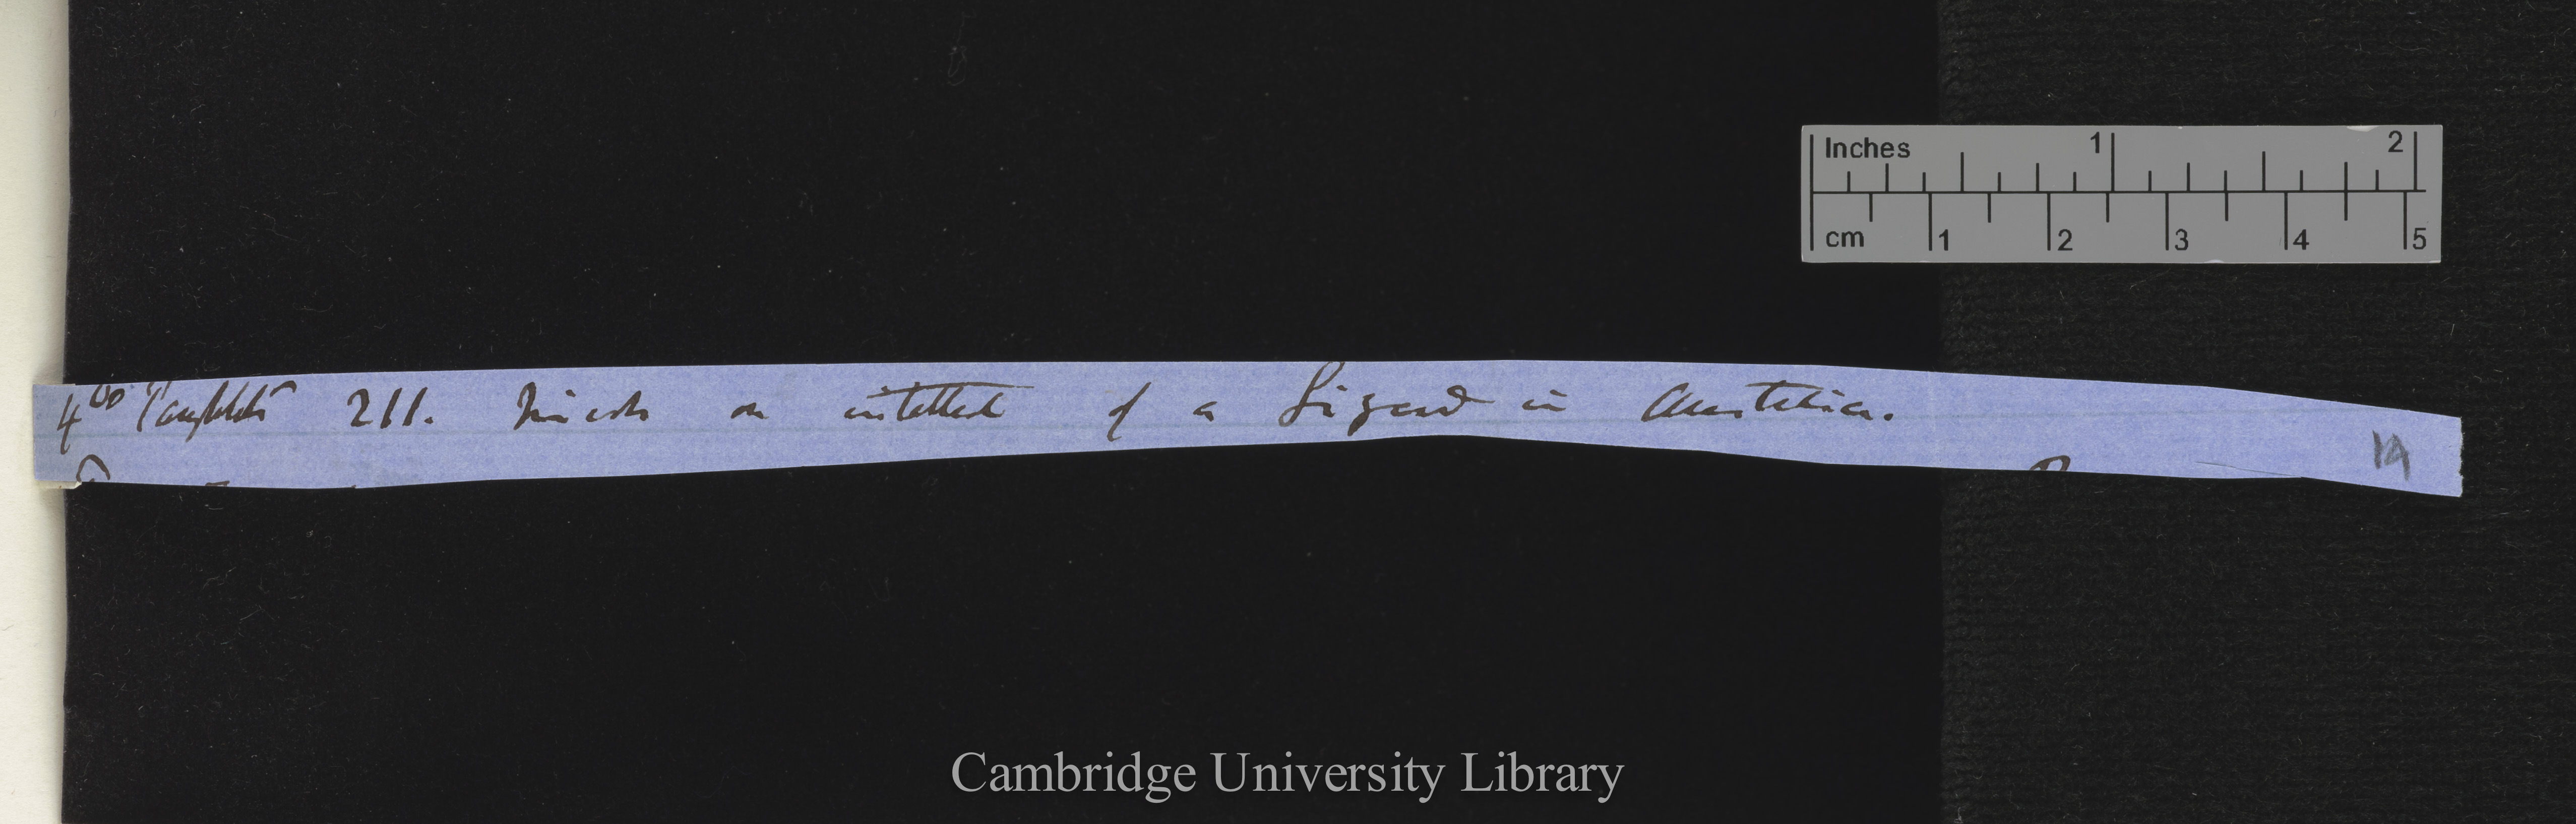 Inches 1 2
cm 1 2 3 4 5
4to Pamphlets 211. on intellect of a Lizard in Australia.
19
Cambridge University Library